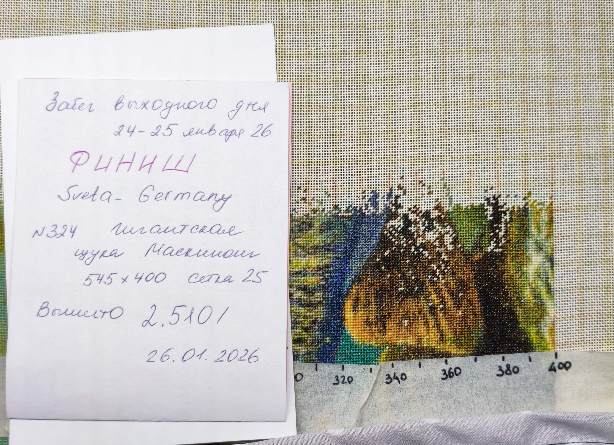 Забег выходного дня
24-25 января 26
ФИНИШ
Sveta-Germany
№324 гигантская
щука Маскинонг
545×400 сетка 25
Вышито
26.01.2026
320 340 360 380 400